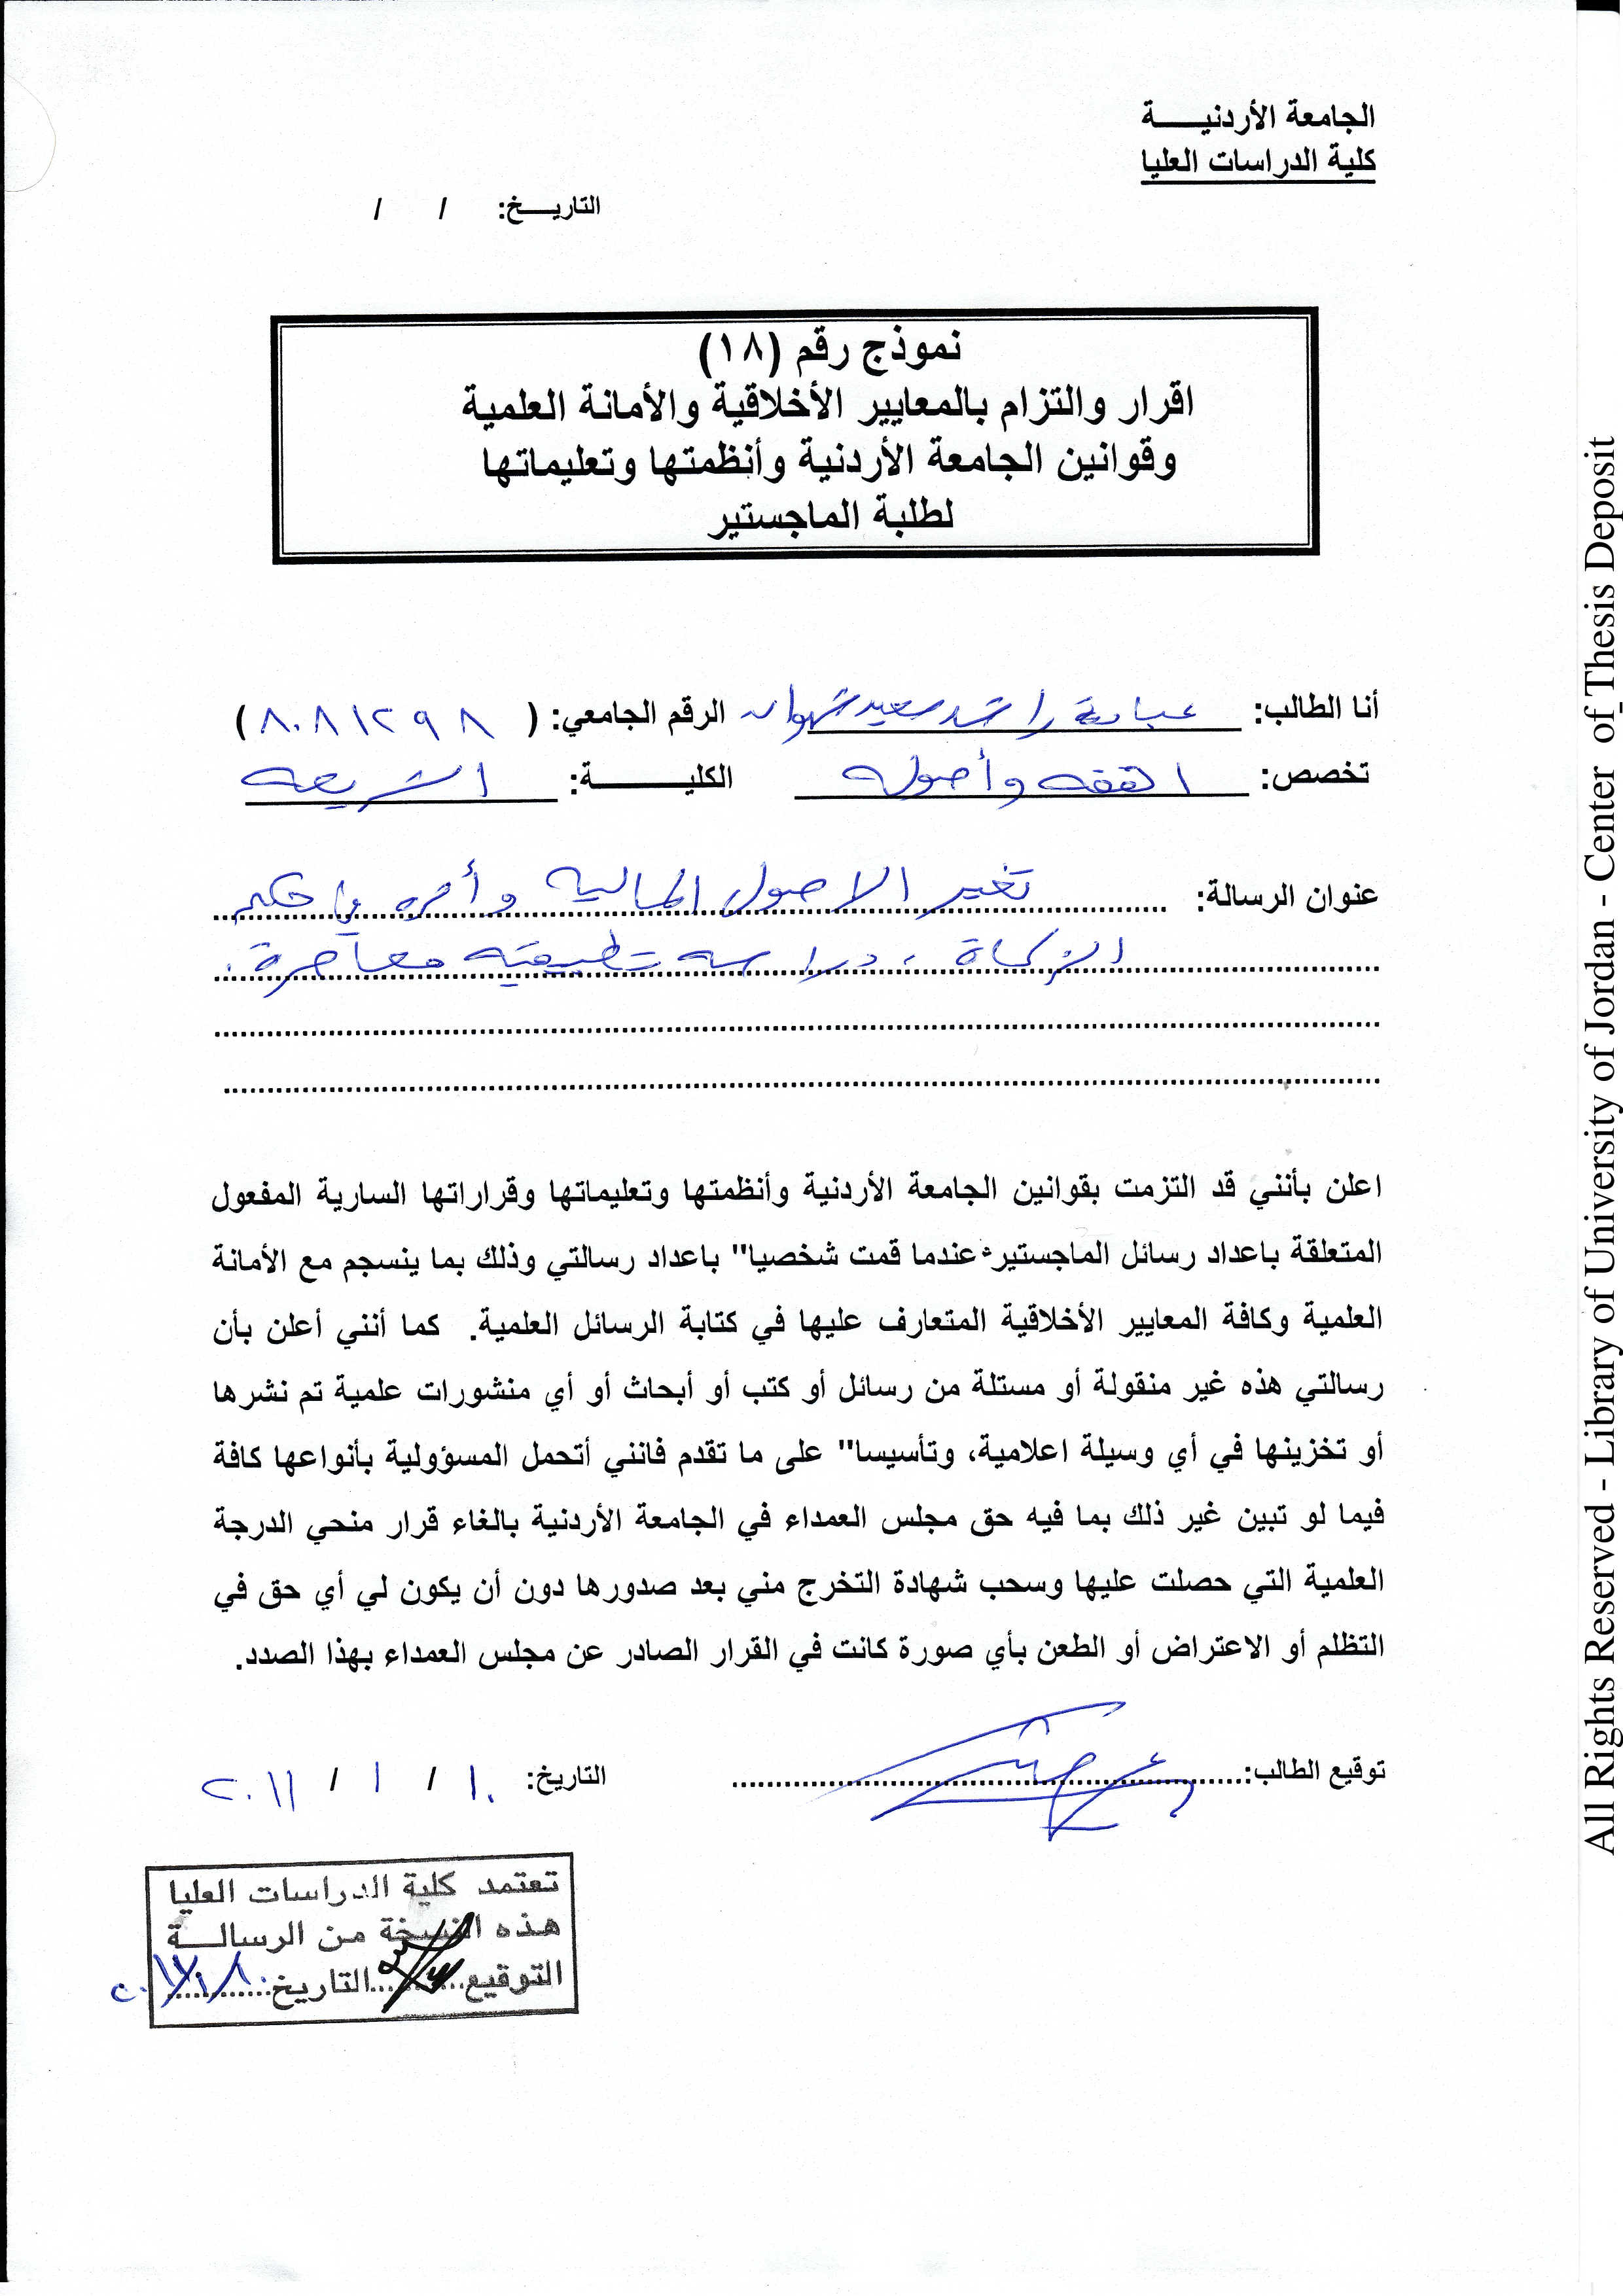 الجامعة الأردنيـــــة
كلية الدراسات العليا
التاريـــخ: / /
نموذج رقم (١٨)
اقرار والتزام بالمعايير الأخلاقية والأمانة العلمية
وقوانين الجامعة الأردنية وأنظمتها وتعليماتها
لطلبة الماجستير
أنا الطالب: عبادة راشد سعيد شهوان الرقم الجامعي: ( ٨٠٨١٢٩٨ )
تخصص: الفقه وأصوله الكليـــــــــة: الشريعه
عنوان الرسالة: تغير الاصول المالية وأثره في حكم
الزكاة ، دراسه تطبيقيه معاصرة .
اعلن بأنني قد التزمت بقوانين الجامعة الأردنية وأنظمتها وتعليماتها وقراراتها السارية المفعول
المتعلقة باعداد رسائل الماجستير عندما قمت شخصيا" باعداد رسالتي وذلك بما ينسجم مع الأمانة
العلمية وكافة المعايير الأخلاقية المتعارف عليها في كتابة الرسائل العلمية. كما أنني أعلن بأن
رسالتي هذه غير منقولة أو مستلة من رسائل أو كتب أو أبحاث أو أي منشورات علمية تم نشرها
أو تخزينها في أي وسيلة اعلامية، وتأسيسا" على ما تقدم فانني أتحمل المسؤولية بأنواعها كافة
فيما لو تبين غير ذلك بما فيه حق مجلس العمداء في الجامعة الأردنية بالغاء قرار منحي الدرجة
العلمية التي حصلت عليها وسحب شهادة التخرج مني بعد صدورها دون أن يكون لي أي حق في
التظلم أو الاعتراض أو الطعن بأي صورة كانت في القرار الصادر عن مجلس العمداء بهذا الصدد.
توقيع الطالب: التاريخ: ١٠ / ١ / ٢٠١١
تعتمد كلية الدراسات العليا
هذه النسخة من الرسالـــة
التوقيع التاريخ:
All Rights Reserved - Library of University of Jordan - Center of Thesis Deposit